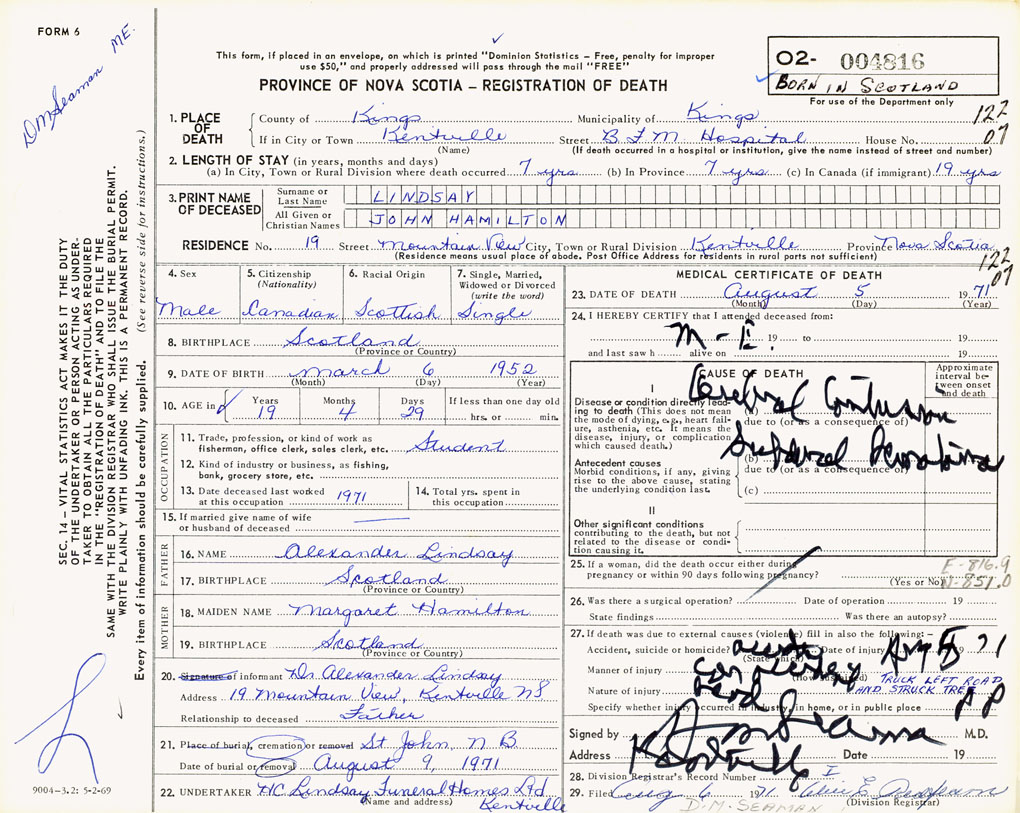 FORM 6
DM Seaman M.E.
This form, if placed in an envelope, on which is printed "Dominion Statistics – Free, penalty for improper
use $50," and properly addressed will pass through the mail "FREE"
PROVINCE OF NOVA SCOTIA – REGISTRATION OF DEATH
02- 004816
BORN IN SCOTLAND
For use of the Department only
SEC. 14 – VITAL STATISTICS ACT MAKES IT THE DUTY
OF THE UNDERTAKER OR PERSON ACTING AS UNDER-
TAKER TO OBTAIN ALL THE PARTICULARS REQUIRED
IN THE "REGISTRATION OF DEATH" AND TO FILE THE
SAME WITH THE DIVISION REGISTRAR WHO SHALL ISSUE THE BURIAL PERMIT.
WRITE PLAINLY WITH UNFADING INK. THIS IS A PERMANENT RECORD.
Every item of information should be carefully supplied. (See reverse side for instructions.)
9004-3.2: 5-2-69
1. PLACE OF DEATH
County of Kings Municipality of Kings 122
If in City or Town Kentville Street B F M Hospital House No. 07
(Name) (If death occurred in a hospital or institution, give the name instead of street and number)
2. LENGTH OF STAY (in years, months and days)
(a) In City, Town or Rural Division where death occurred 7 yrs (b) In Province 7 yrs (c) In Canada (if immigrant) 19 yrs
3. PRINT NAME OF DECEASED
Surname or Last Name LINDSAY
All Given or Christian Names JOHN HAMILTON
RESIDENCE No. 19 Street Mountain View City, Town or Rural Division Kentville Province Nova Scotia
(Residence means usual place of abode. Post Office Address for residents in rural parts not sufficient)
122
07
4. Sex
Male
5. Citizenship
(Nationality)
Canadian
6. Racial Origin
Scottish
7. Single, Married,
Widowed or Divorced
(write the word)
Single
8. BIRTHPLACE Scotland
(Province or Country)
9. DATE OF BIRTH March 6 1952
(Month) (Day) (Year)
10. AGE in Years Months Days If less than one day old
19 4 29 hrs. or min.
OCCUPATION
11. Trade, profession, or kind of work as
fisherman, office clerk, sales clerk, etc. Student
12. Kind of industry or business, as fishing,
bank, grocery store, etc.
13. Date deceased last worked
at this occupation 1971
14. Total yrs. spent in
this occupation
15. If married give name of wife
or husband of deceased
FATHER
16. NAME Alexander Lindsay
17. BIRTHPLACE Scotland
(Province or Country)
MOTHER
18. MAIDEN NAME Margaret Hamilton
19. BIRTHPLACE Scotland
(Province or Country)
20. Signature of informant Dr Alexander Lindsay
Address 19 Mountain View, Kentville NS
Relationship to deceased Father
21. Place of burial, cremation or removal St John, N.B.
Date of burial or removal August 9, 1971
22. UNDERTAKER HC Lindsay Funeral Homes Ltd
(Name and address) Kentville
MEDICAL CERTIFICATE OF DEATH
23. DATE OF DEATH August 5 1971
(Month) (Day) (Year)
24. I HEREBY CERTIFY that I attended deceased from:
M-E. 19 to 19
and last saw h alive on 19
CAUSE OF DEATH
Approximate interval between onset and death
I
Disease or condition directly lead-
ing to death (This does not mean
the mode of dying, e.g., heart fail-
ure, asthenia, etc. It means the
disease, injury, or complication
which caused death.)
(a) Cerebral Contusion
due to (or as a consequence of)
Antecedent causes
Morbid conditions, if any, giving
rise to the above cause, stating
the underlying condition last.
(b) Subdural Hematoma
due to (or as a consequence of)
(c)
II
Other significant conditions
contributing to the death, but not
related to the disease or condi-
tion causing it.
25. If a woman, did the death occur either during
pregnancy or within 90 days following pregnancy?
(Yes or No)
E-816.9
N-851.0
26. Was there a surgical operation? Date of operation 19
State findings Was there an autopsy?
27. If death was due to external causes (violence) fill in also the following: –
Accident, suicide or homicide? Date of injury Aug 5 71
(State which)
Manner of injury
(How sustained) TRUCK LEFT ROAD
AND STRUCK TREE
Nature of injury
Specify whether injury occurred in industry, in home, or in public place PP
Signed by DM Seaman M.D.
Address Kentville Date 19
28. Division Registrar's Record Number I
29. Filed Aug 6 1971
(Division Registrar)
D.M. SEAMAN